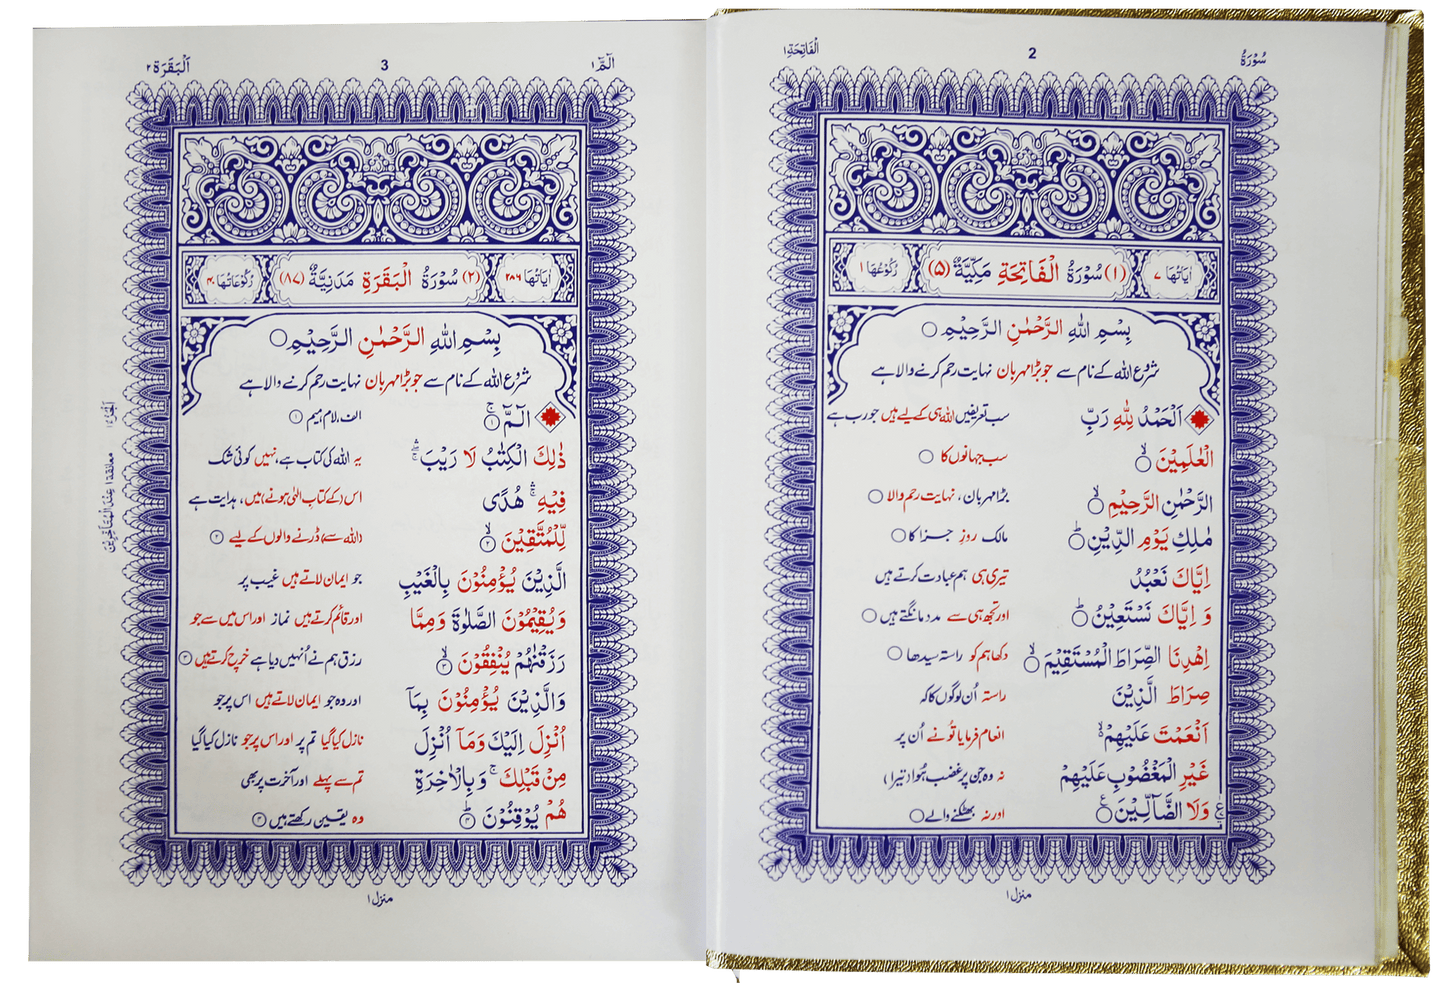 سُوْرَةُ 2 الْفَاتِحَة ١
اٰيَاتُهَا ٧ (١) سُوْرَةُ الْفَاتِحَةِ مَكِّيَّةٌ (٥) رُكُوْعُهَا ١
بِسْمِ اللّٰهِ الرَّحْمٰنِ الرَّحِيْمِ
شروع اللہ کے نام سے جو بڑا مہربان نہایت رحم کرنے والا ہے
اَلْحَمْدُ لِلّٰهِ رَبِّ سب تعریفیں اللہ ہی کے لیے ہیں جو رب ہے
الْعٰلَمِيْنَ سب جہانوں کا
الرَّحْمٰنِ الرَّحِيْمِ بڑا مہربان، نہایت رحم والا
مٰلِكِ يَوْمِ الدِّيْنِ ؕ مالک روزِ جزا کا
اِيَّاكَ نَعْبُدُ تیری ہی ہم عبادت کرتے ہیں
وَ اِيَّاكَ نَسْتَعِيْنُ ؕ اور تجھ ہی سے مدد مانگتے ہیں
اِهْدِنَا الصِّرَاطَ الْمُسْتَقِيْمَ دکھا ہم کو راستہ سیدھا
صِرَاطَ الَّذِيْنَ راستہ اُن لوگوں کا کہ
اَنْعَمْتَ عَلَيْهِمْ انعام فرمایا تُو نے اُن پر
غَيْرِ الْمَغْضُوْبِ عَلَيْهِمْ نہ وہ جن پر غضب ہُوا (تیرا)
وَلَا الضَّآلِّيْنَ اور نہ بھٹکنے والے
منزل ١
الٓمّٓ ١ 3 اَلْبَقَرَة ٢
اٰيَاتُهَا ٢٨٦ (٢) سُوْرَةُ الْبَقَرَةِ مَدَنِيَّةٌ (٨٧) رُكُوْعَاتُهَا ٤٠
بِسْمِ اللّٰهِ الرَّحْمٰنِ الرَّحِيْمِ
شروع اللہ کے نام سے جو بڑا مہربان نہایت رحم کرنے والا ہے
الٓمّٓ ١ الف، لام، میم ١
ذٰلِكَ الْكِتٰبُ لَا رَيْبَ یہ اللہ کی کتاب ہے، نہیں کوئی شک
فِيْهِ هُدًى اس (کے کتابِ الٰہی ہونے) میں، ہدایت ہے
لِّلْمُتَّقِيْنَ ٢ (اللہ سے) ڈرنے والوں کے لیے ٢
الَّذِيْنَ يُؤْمِنُوْنَ بِالْغَيْبِ جو ایمان لاتے ہیں غیب پر
وَيُقِيْمُوْنَ الصَّلٰوةَ وَمِمَّا اور قائم کرتے ہیں نماز اور اس میں سے جو
رَزَقْنٰهُمْ يُنْفِقُوْنَ ٣ رزق ہم نے اُنہیں دیا ہے خرچ کرتے ہیں ٣
وَالَّذِيْنَ يُؤْمِنُوْنَ بِمَآ اور وہ جو ایمان لاتے ہیں اس پر جو
اُنْزِلَ اِلَيْكَ وَمَآ اُنْزِلَ نازل کیا گیا تم پر اور اس پر جو نازل کیا گیا
مِنْ قَبْلِكَ ۚ وَبِالْاٰخِرَةِ تم سے پہلے اور آخرت پر بھی
هُمْ يُوْقِنُوْنَ ؕ ٤ وہ یقین رکھتے ہیں ٤
منزل ١